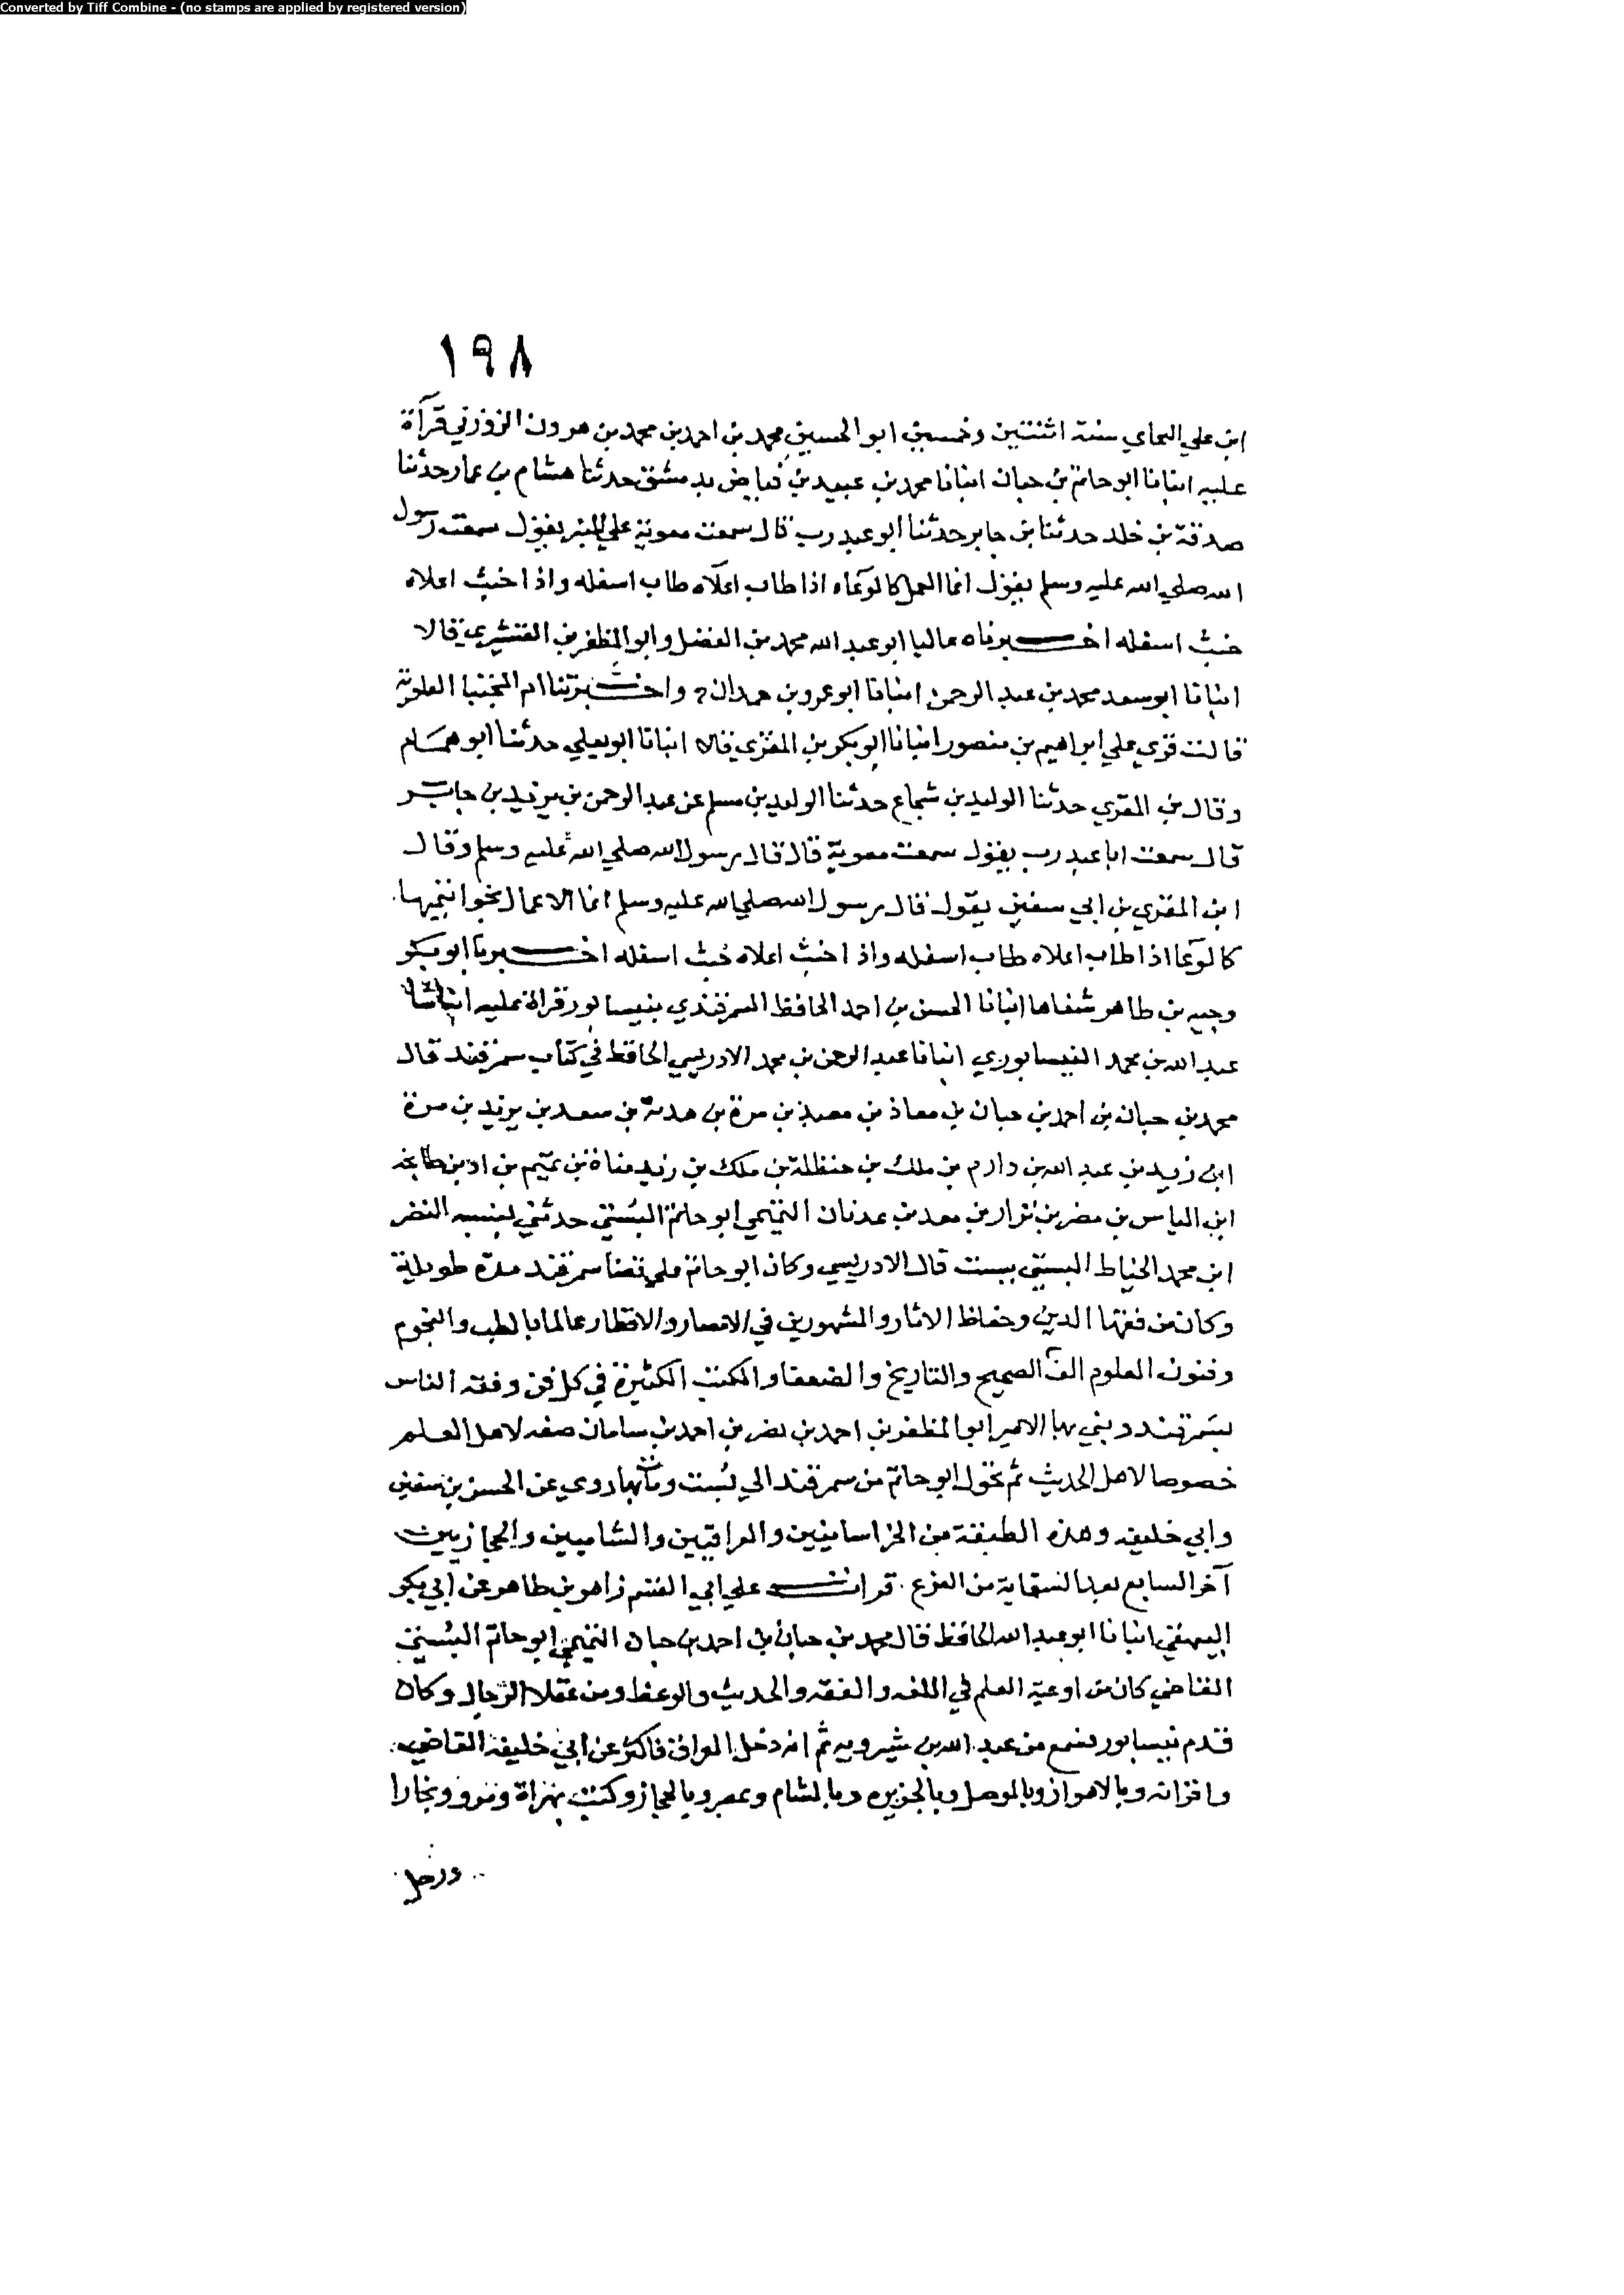 Converted by Tiff Combine - (no stamps are applied by registered version)
١٩٨
ابن علي البحاي سنة اثنتين وخمسين ابو الحسين محمد بن احمد بن محمد بن هرون الزوزني قرآة
عليه انبانا ابو حاتم بن حبان انبانا محمد بن عبيد بن فياض بدمشق حدثنا هشام بن عمار حدثنا
صدقة بن خلد حدثنا بن جابر حدثنا ابو عبد رب قال سمعت معوية علي المنبر يقول سمعت رسول
الله صلي الله عليه وسلم يقول انما العمل كالوعاء اذا طاب اعلاه طاب اسفله واذا خبث اعلاه
خبث اسفله اخبرناه عاليا ابو عبد الله محمد بن الفضل وابو المظفر بن القشيري قالا
انبانا ابو سعد محمد بن عبد الرحمن انبانا ابو عمرو بن حمدان ح واخبرتنا ام المجتبا العلوية
قالت قري علي ابراهيم بن منصور انبانا ابو بكر بن المقري قالا انبانا ابو يعلي حدثنا ابو همام
وقال بن المقري حدثنا الوليد بن شجاع حدثنا الوليد بن مسلم عن عبد الرحمن بن يزيد بن جابر
قال سمعت ابا عبد رب يقول سمعت معوية قال قال رسول الله صلي الله عليه وسلم وقال
ابن المقري بن ابي سفين يقول قال رسول الله صلي الله عليه وسلم انما الاعمال بخواتيمها
كالوعا اذا طاب اعلاه طاب اسفله واذا خبث اعلاه خبث اسفله اخبرنا ابو بكر
وجيه بن طاهر شفاها انبانا الحسن بن احمد الحافظ السمرقندي بنيسابور قراة عليه انبانا
عبد الله بن محمد النيسابوري انبانا عبد الرحمن بن محمد الادريسي الحافظ في كتاب سمرقند قال
محمد بن حبان بن احمد بن حبان بن معاذ بن معبد بن مرة بن هدية بن سعد بن يزيد بن مرة
ابن زيد بن عبد الله بن دارم بن ملك بن حنظلة بن ملك بن زيد مناة بن تميم بن اد بن طابخه
ابن الياس بن مضر بن نزار بن معد بن عدنان التميمي ابو حاتم البُستي حدثني بنسبه النضر
ابن محمد الخياط البستي ببست قال الادريسي وكان ابو حاتم علي قضا سمرقند مدة طويلة
وكان من فقها الدين وحفاظ الاثار والمشهورين في الامصار والاقطار عالما بالطب والنجوم
وفنون العلوم الف الصحيح والتاريخ والضعفا والكتب الكثيرة في كل فن وفقه الناس
بسمرقند وبني بها الامير ابو المظفر بن احمد بن نصر بن احمد بن سامان صفه لاهل العلم
خصوصا لاهل الحديث ثم تحول ابو حاتم من سمرقند الي بُست ومات بها روي عن الحسن بن سفين
وابي خليفه وهذه الطبقة من الخراسانيين والعراقيين والشاميين والحجازيين
آخر السابع بعد السمايه من الفرع قرات علي ابي القسم زاهر بن طاهر عن ابي بكر
البيهقي انبانا ابو عبد الله الحافظ قال محمد بن حبان بن احمد بن حبان التميمي ابو حاتم البُستي
القاضي كان من اوعية العلم في اللغه والفقه والحديث والوعظ ومن عقلا الرجال وكان
قدم نيسابور فسمع من عبد الله بن شيرويه ثم انه دخل العراق فاكثر عن ابي خليفة القاضي
واقرانه وبالاهواز وبالموصل وبالجزيره وبالشام وبمصر وبالحجاز وكتب بهراة ومرو وبخارا
ورحل